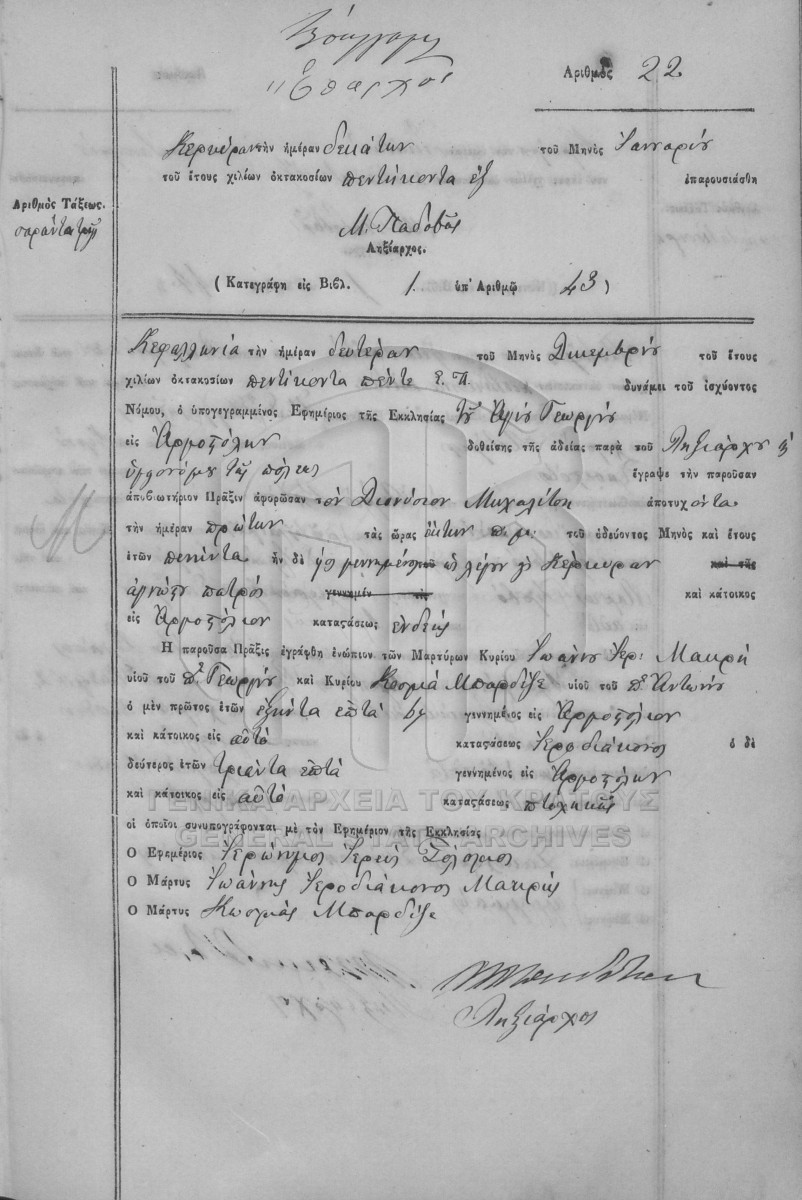 Ἔπαρχος
Ἀριθμὸς 22
Κερκύραν τὴν ἡμέραν δεκάτην τοῦ Μηνὸς Ἰανναρίου
τοῦ ἔτους χιλίων ὀκτακοσίων πεντήκοντα ἕξ ἐπαρουσιάσθη
Ἀριθμὸς Τάξεως.
σαράντα τρεῖς
Μ. Παδοβᾶς
Ληξίαρχος.
( Κατεγράφη εἰς Βιβλ. 1 ὑπ' Ἀριθμῷ 43 )
Κεφαλληνία τὴν ἡμέραν δευτέραν τοῦ Μηνὸς Δικεμβρίου τοῦ ἔτους
χιλίων ὀκτακοσίων πεντήκοντα πέντε Ε. Π. δυνάμει τοῦ ἰσχύοντος
Νόμου, ὁ ὑπογεγραμμένος Ἐφημέριος τῆς Ἐκκλησίας τοῦ Ἁγίου Γεωργίου
εἰς Ἀργοστόλιον δοθείσης τῆς ἀδείας παρὰ τοῦ Ληξιάρχου
ὑγειονόμου τῆς πόλεως ἔγραψε τὴν παροῦσαν
ἀποβιωτήριον Πρᾶξιν ἀφορῶσαν τὸν Διονύσιον Μιχαλίτση ἀποτυχόντα
τὴν ἡμέραν πρώτην τὰς ὥρας ἕκτην π.μ. τοῦ ὁδεύοντος Μηνὸς καὶ ἔτους
ἐτῶν πενῆντα ἦν δὲ γεννημένος ὡς λέγουν εἰς Κέρκυραν καὶ τῆς
ἀγνώστου πατρός γεννημέν τῆς καὶ κάτοικος
εἰς Ἀργοστόλιον καταςάσεως ἐνδεής
Ἡ παροῦσα Πρᾶξις ἐγράφθη ἐνώπιον τῶν Μαρτύρων Κυρίου Ἰωάννου Ἱερ: Μακρῆ
υἱοῦ τοῦ πʳ Γεωργίου καὶ Κυρίου Κοσμᾶ Μπαρδίζε υἱοῦ τοῦ πʳ Ἀντωνίου
ὁ μὲν πρῶτος ἐτῶν ἑξῆντα ἑπτά 67 γεννημένος εἰς Ἀργοστόλιον
καὶ κάτοικος εἰς αὐτό καταςάσεως Ἱεροδιάκονος ὁ δὲ
δεύτερος ἐτῶν τριάντα ἑπτά γεννημένος εἰς Ἀργοστόλιον
καὶ κάτοικος εἰς αὐτό καταςάσεως πτωχικῆς
οἱ ὁποῖοι συνυπογράφονται μὲ τὸν Ἐφημέριον τῆς Ἐκκλησίας
Ὁ Ἐφημέριος Ἱερώνυμος Ἱερεὺς
Ὁ Μάρτυς Ἰωάννης Ἱεροδιάκονος Μακρῆς
Ὁ Μάρτυς Κοσμᾶς Μπαρδίζε
Ληξίαρχος
ΓΕΝΙΚΑ ΑΡΧΕΙΑ ΤΟΥ ΚΡΑΤΟΥΣ
GENERAL STATE ARCHIVES